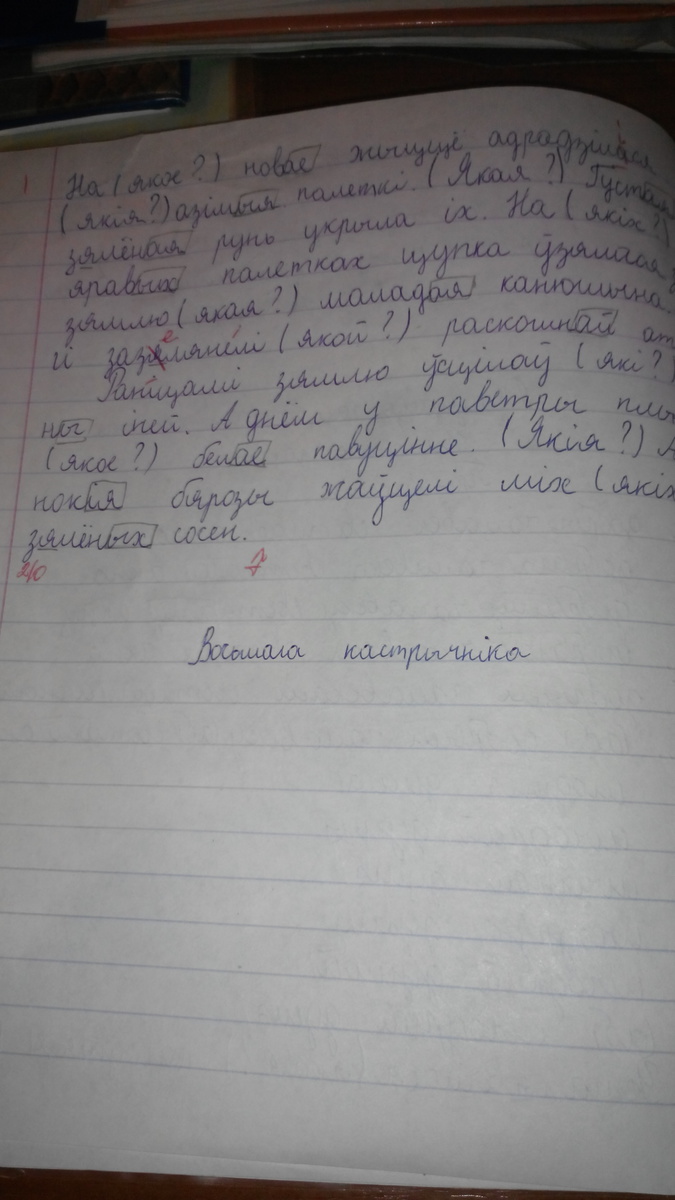 1 На (якое?) новае жыццё адрадзіліся
(якія?) азімыя палеткі. (Якая?) Густая
зялёная рунь укрыла іх. На (якіх?)
яравых палетках шчупка ўзялася
зямлю (якая?) маладая канюшына.
і зазелянелі (якой?) раскошнай
Раніцамі зямлю ўсцілаў (які?)
ны іней. А днём у паветры
(якое?) белае павуцінне. (Якія?)
нокія бярозы жаўцелі між (якіх
зялёных сосен.
2/0 7
Восьмага кастрычніка